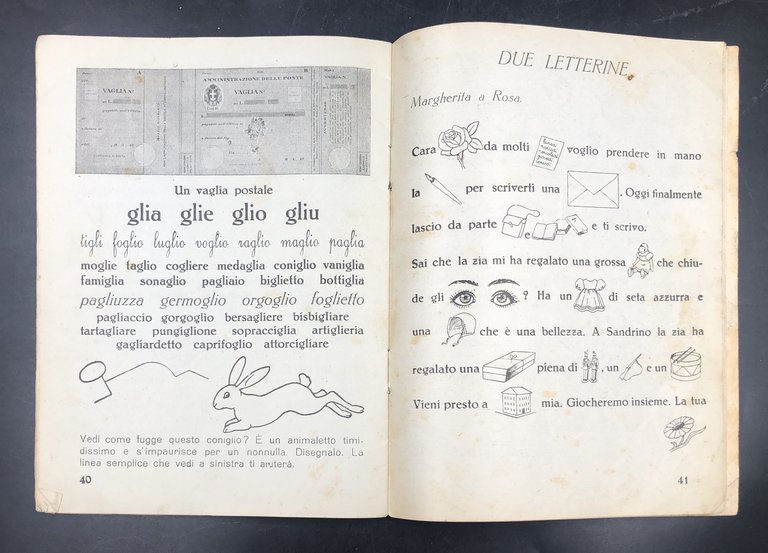 AMMINISTRAZIONE DELLE POSTE
VAGLIA N.
VAGLIA N.
VAGLIA N.
Un vaglia postale
glia glie glio gliu
tigli foglio luglio voglio raglio maglio paglia
moglie taglio cogliere medaglia coniglio vaniglia
famiglia sonaglio pagliaio biglietto bottiglia
pagliuzza germoglio orgoglio foglietto
pagliaccio gorgoglio bersagliere bisbigliare
tartagliare pungiglione sopracciglia artiglieria
gagliardetto caprifoglio attorcigliare
Vedi come fugge questo coniglio? È un animaletto timi-
dissimo e s'impaurisce per un nonnulla. Disegnalo. La
linea semplice che vedi a sinistra ti aiuterà.
40
DUE LETTERINE
Margherita a Rosa.
Cara da molti voglio prendere in mano
la per scriverti una . Oggi finalmente
lascio da parte e e ti scrivo.
Sai che la zia mi ha regalato una grossa che chiu-
de gli ? Ha un di seta azzurra e
una che è una bellezza. A Sandrino la zia ha
regalato una piena di , un e un
Vieni presto a mia. Giocheremo insieme. La tua
41